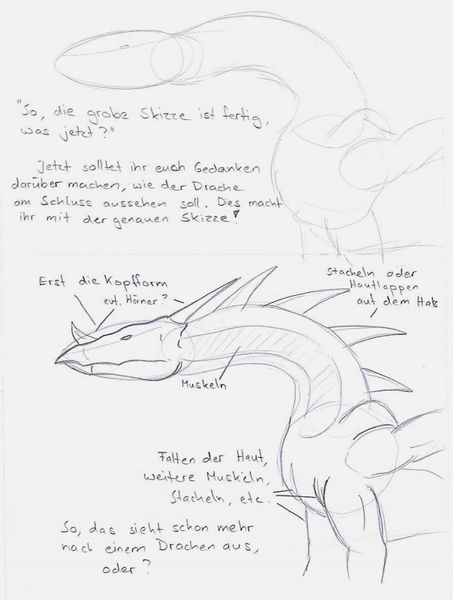 "So, die grobe Skizze ist fertig,
was jetzt?"
Jetzt solltet ihr euch Gedanken
darüber machen, wie der Drache
am Schluss aussehen soll. Dies macht
ihr mit der genauen Skizze!
Erst die Kopfform
evt. Hörner?
Stacheln oder
Hautlappen
auf dem Hals
Muskeln
Falten der Haut,
weitere Muskeln,
Stacheln, etc.
So, das sieht schon mehr
nach einem Drachen aus,
oder?